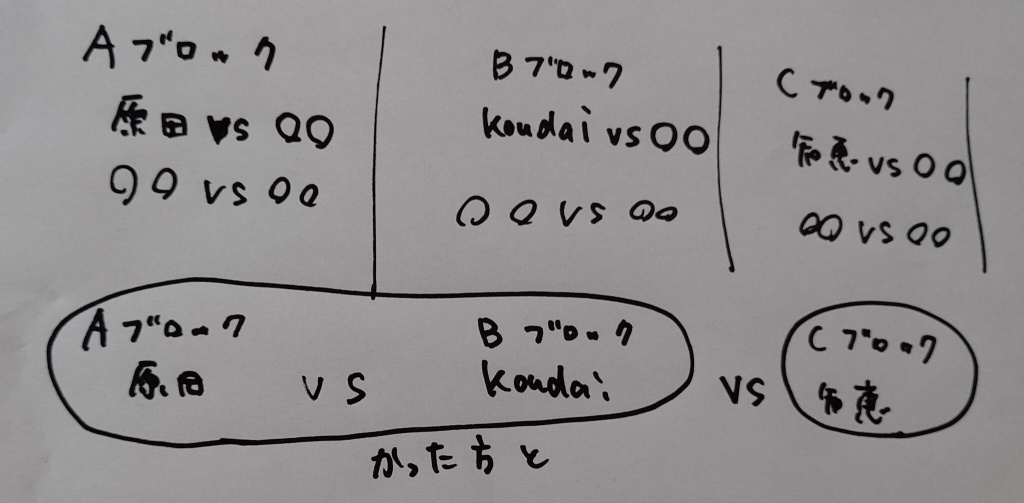 Aブロック
原田 vs 〇〇
〇〇 vs 〇〇
Bブロック
koudai vs 〇〇
〇〇 vs 〇〇
Cブロック
知恵 vs 〇〇
〇〇 vs 〇〇
Aブロック
原田
vs
Bブロック
koudai
vs
Cブロック
知恵
かった方と